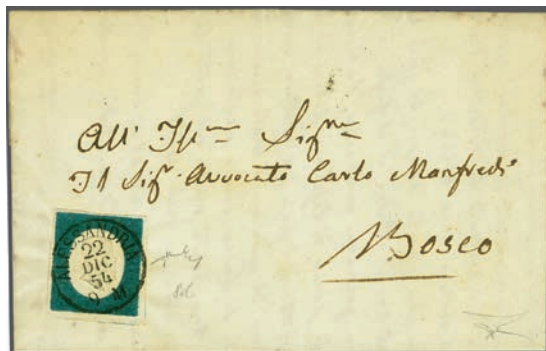 All' Ill.mo Sig.re
Il Sig.r Avvocato Carlo Manfredi
Bosco
ALESSANDRIA
22
DIC
54
9 M